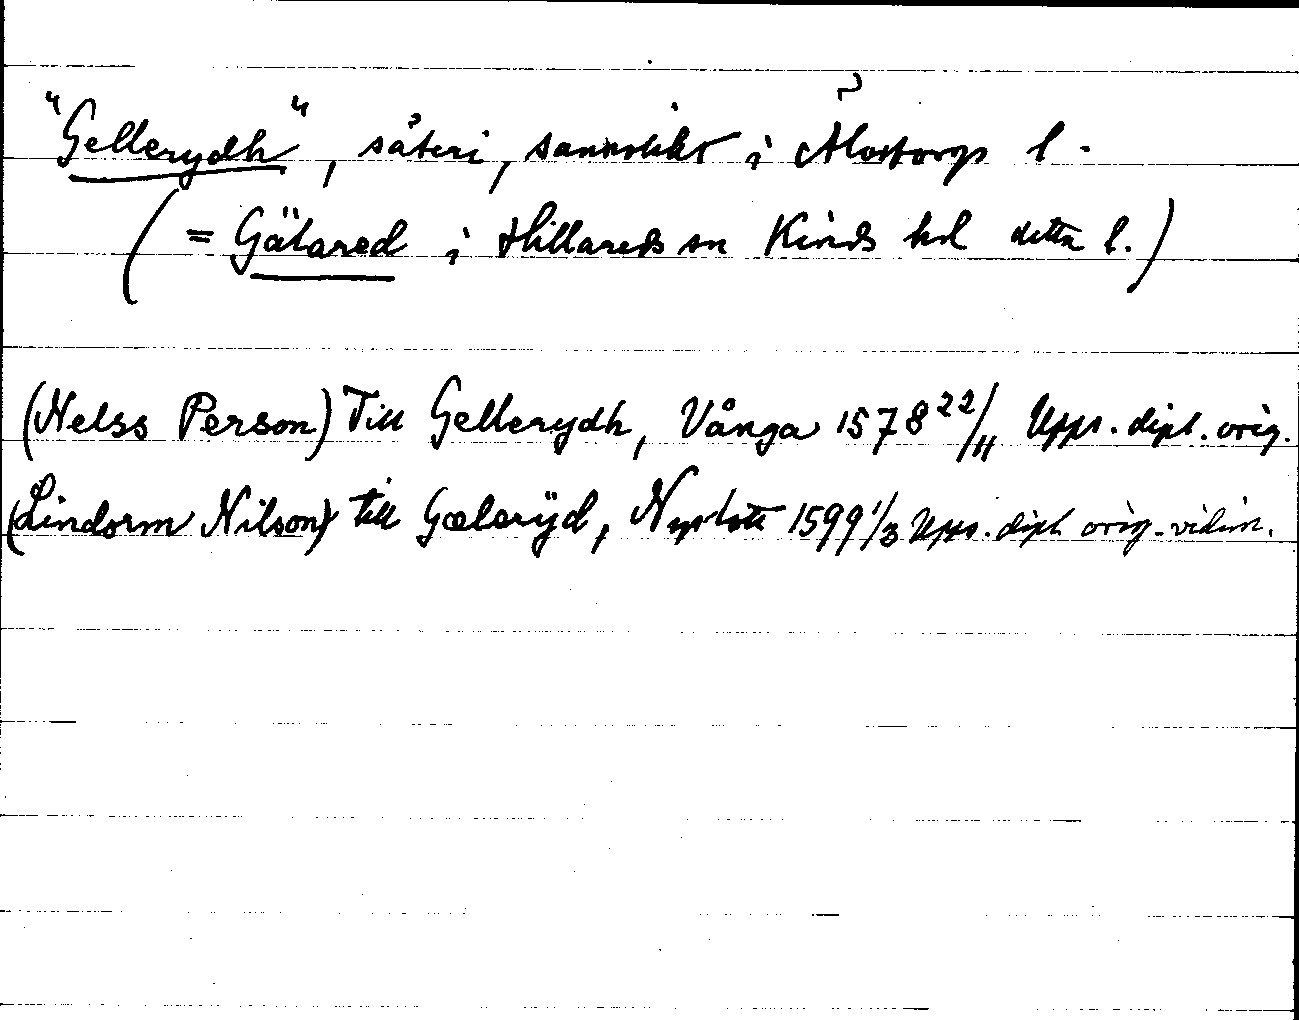 "Gellerydh", säteri, sannolikt i Älvsborgs l.
(= Gälared i Hillareds sn Kinds hd detta l.)
(Nelss Person) Till Gellerydh, Vånga 1578 22/11 Upps. dipl. orig.
(Lindorm Nilson) till Gæleryd, Nyslott 1599 1/3 Upps. dipl. orig.-vidim.